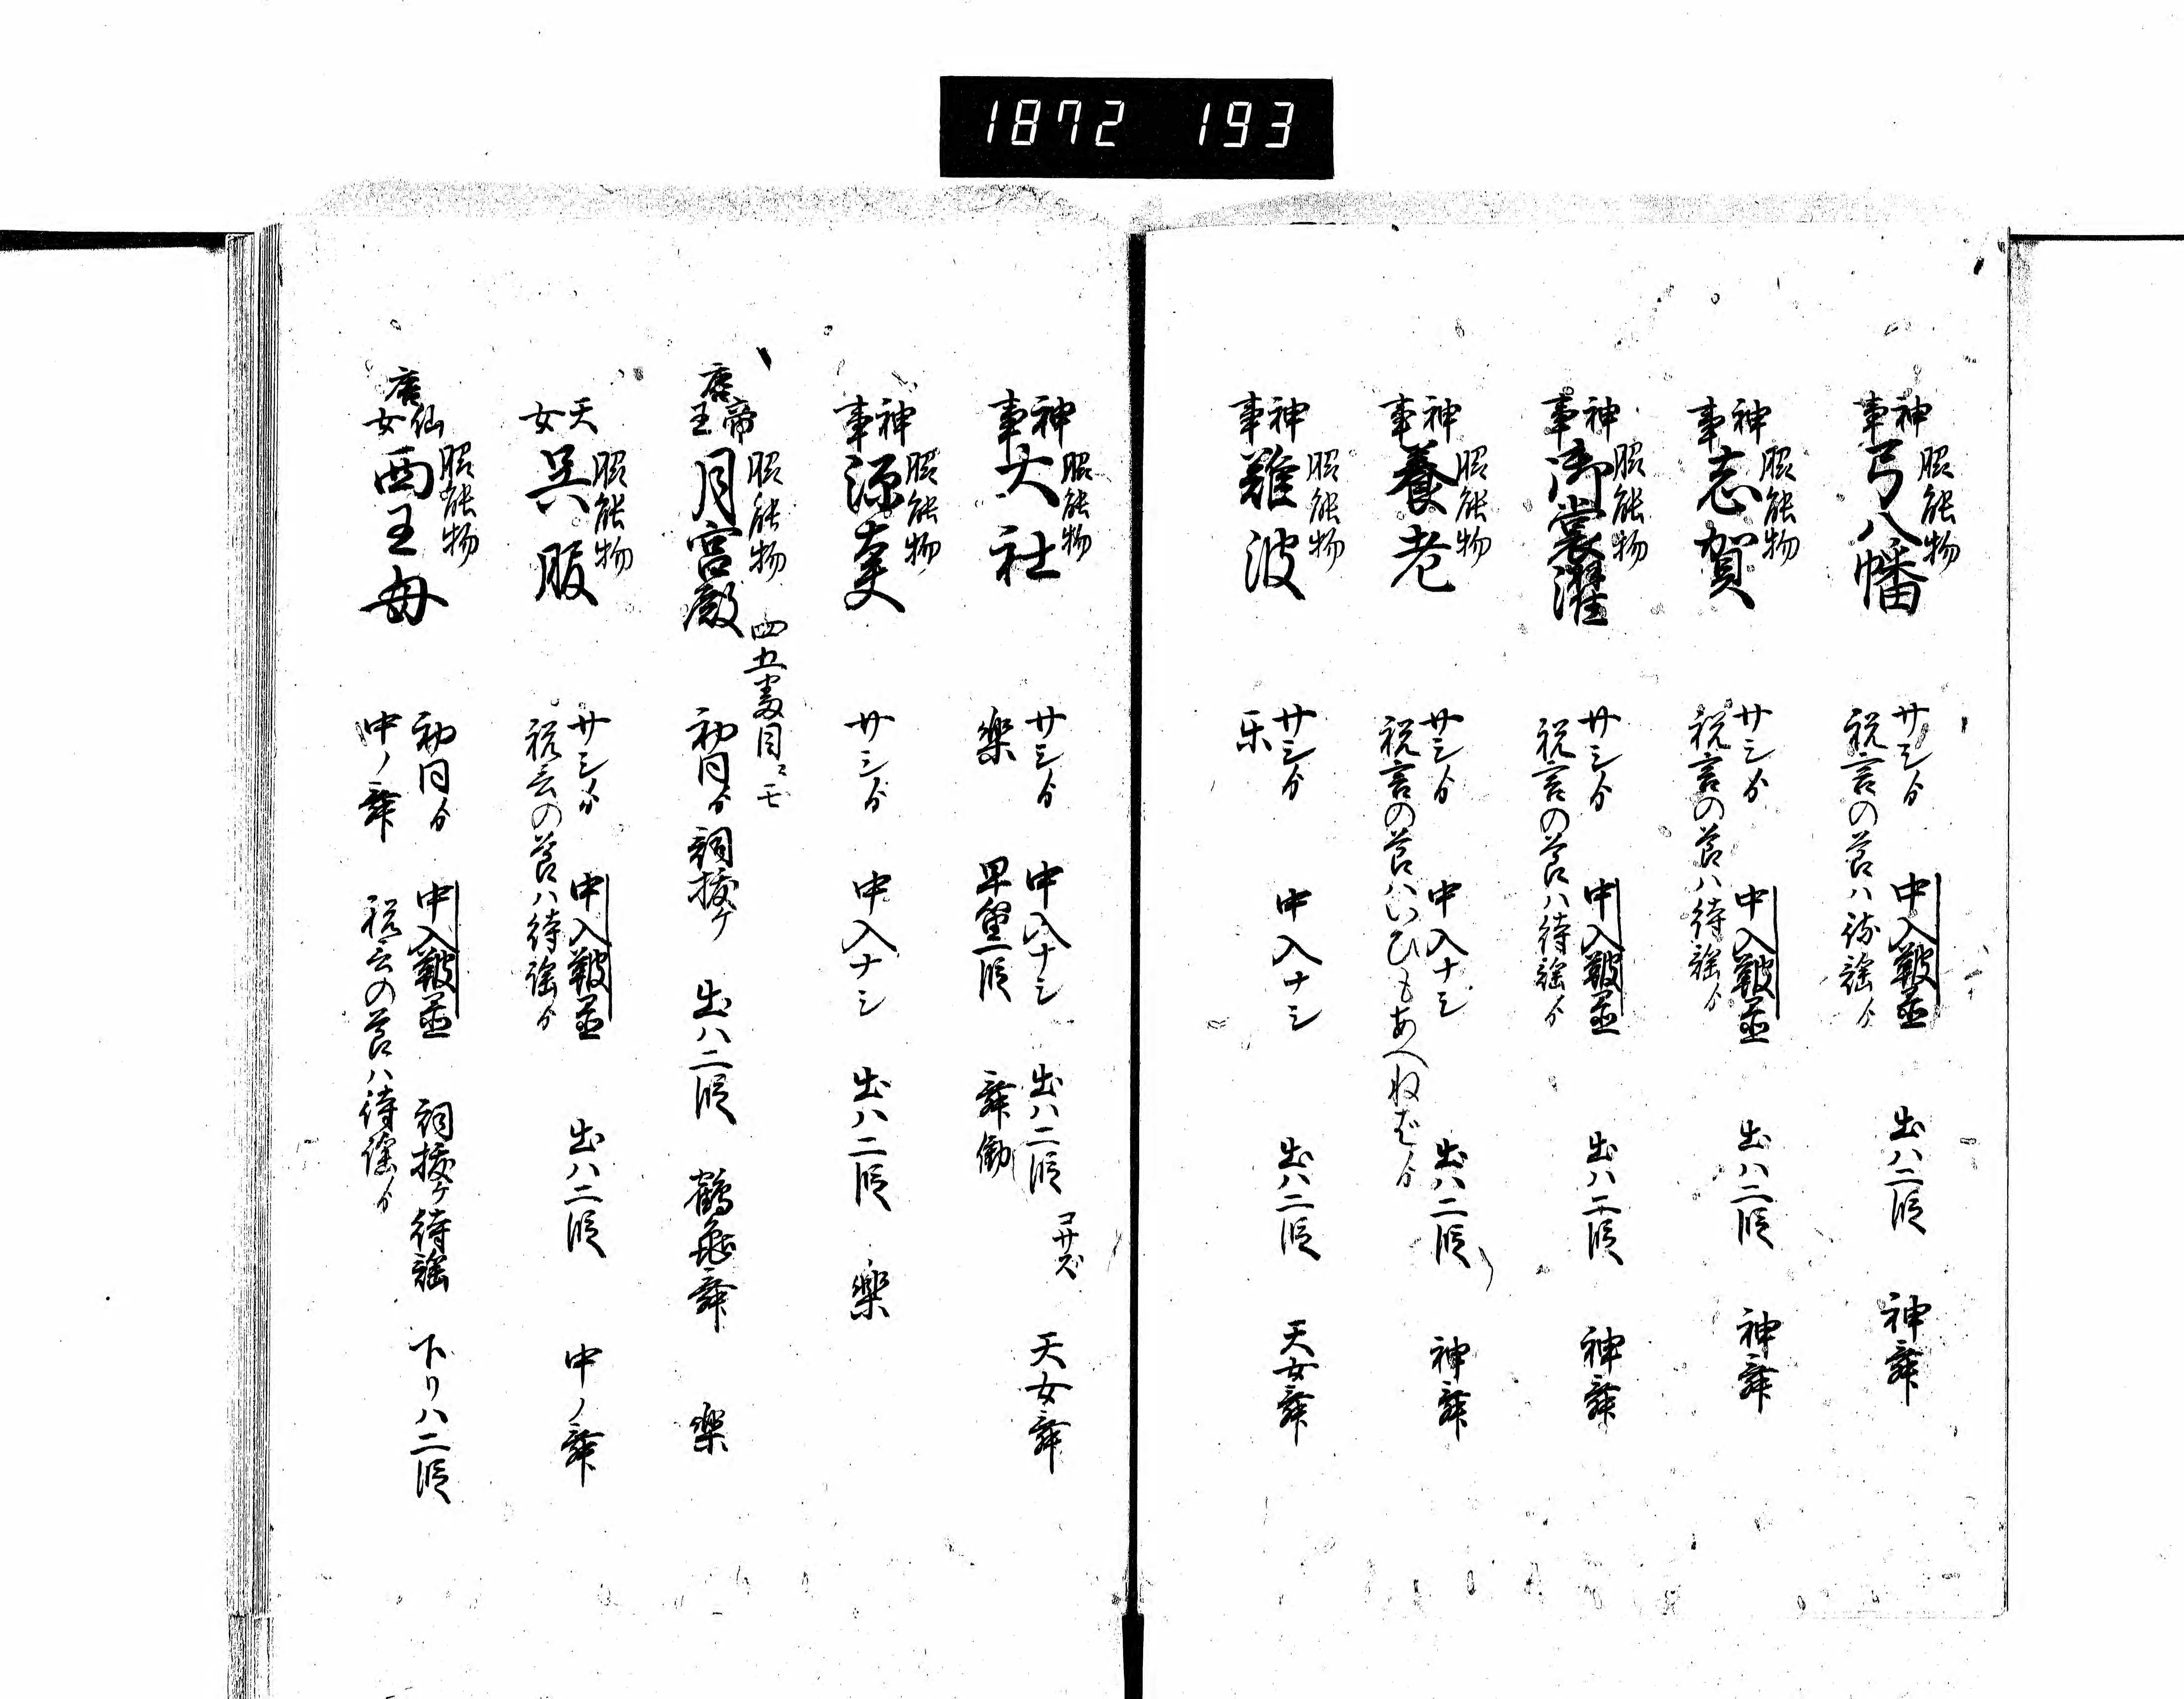 1872 193
神事 脇能物
弓八幡
サシゟ 中入鞁臺 出ハ二段 神舞
祝言の節ハ待謡ゟ
神事 脇能物
志賀
サシゟ 中入鞁臺 出ハ二段 神舞
祝言の節ハ待謡ゟ
神事 脇能物
御裳濯
サシゟ 中入鞁臺 出ハ二段 神舞
祝言の節ハ待謡ゟ
神事 脇能物
養老
サシゟ 中入ナシ 出ハ二段 神舞
祝言の節ハいひもあへねばゟ
神事 脇能物
難波
サシゟ 中入ナシ 出ハ二段 天女舞
乐
神事 脇能物
大社
サシゟ 中入ナシ 出ハ二段 コサズ 天女舞
楽 早笛一段 舞働
神事 脇能物
源太夫
サシゟ 中入ナシ 出ハ二段 楽
唐帝王 脇能物 四五番目ニモ
月宮殿
初同ゟ 詞掛ケ 出ハ二段 鶴亀舞 楽
天女 脇能物
呉服
サシゟ 中入鞁臺 出ハ二段 中ノ舞
祝言の節ハ待謡ゟ
唐仙女 脇能物
西王母
初同ゟ 中入鞁臺 詞掛ケ待謡 下リハ二段
中ノ舞 祝言の節ハ待謡ゟ